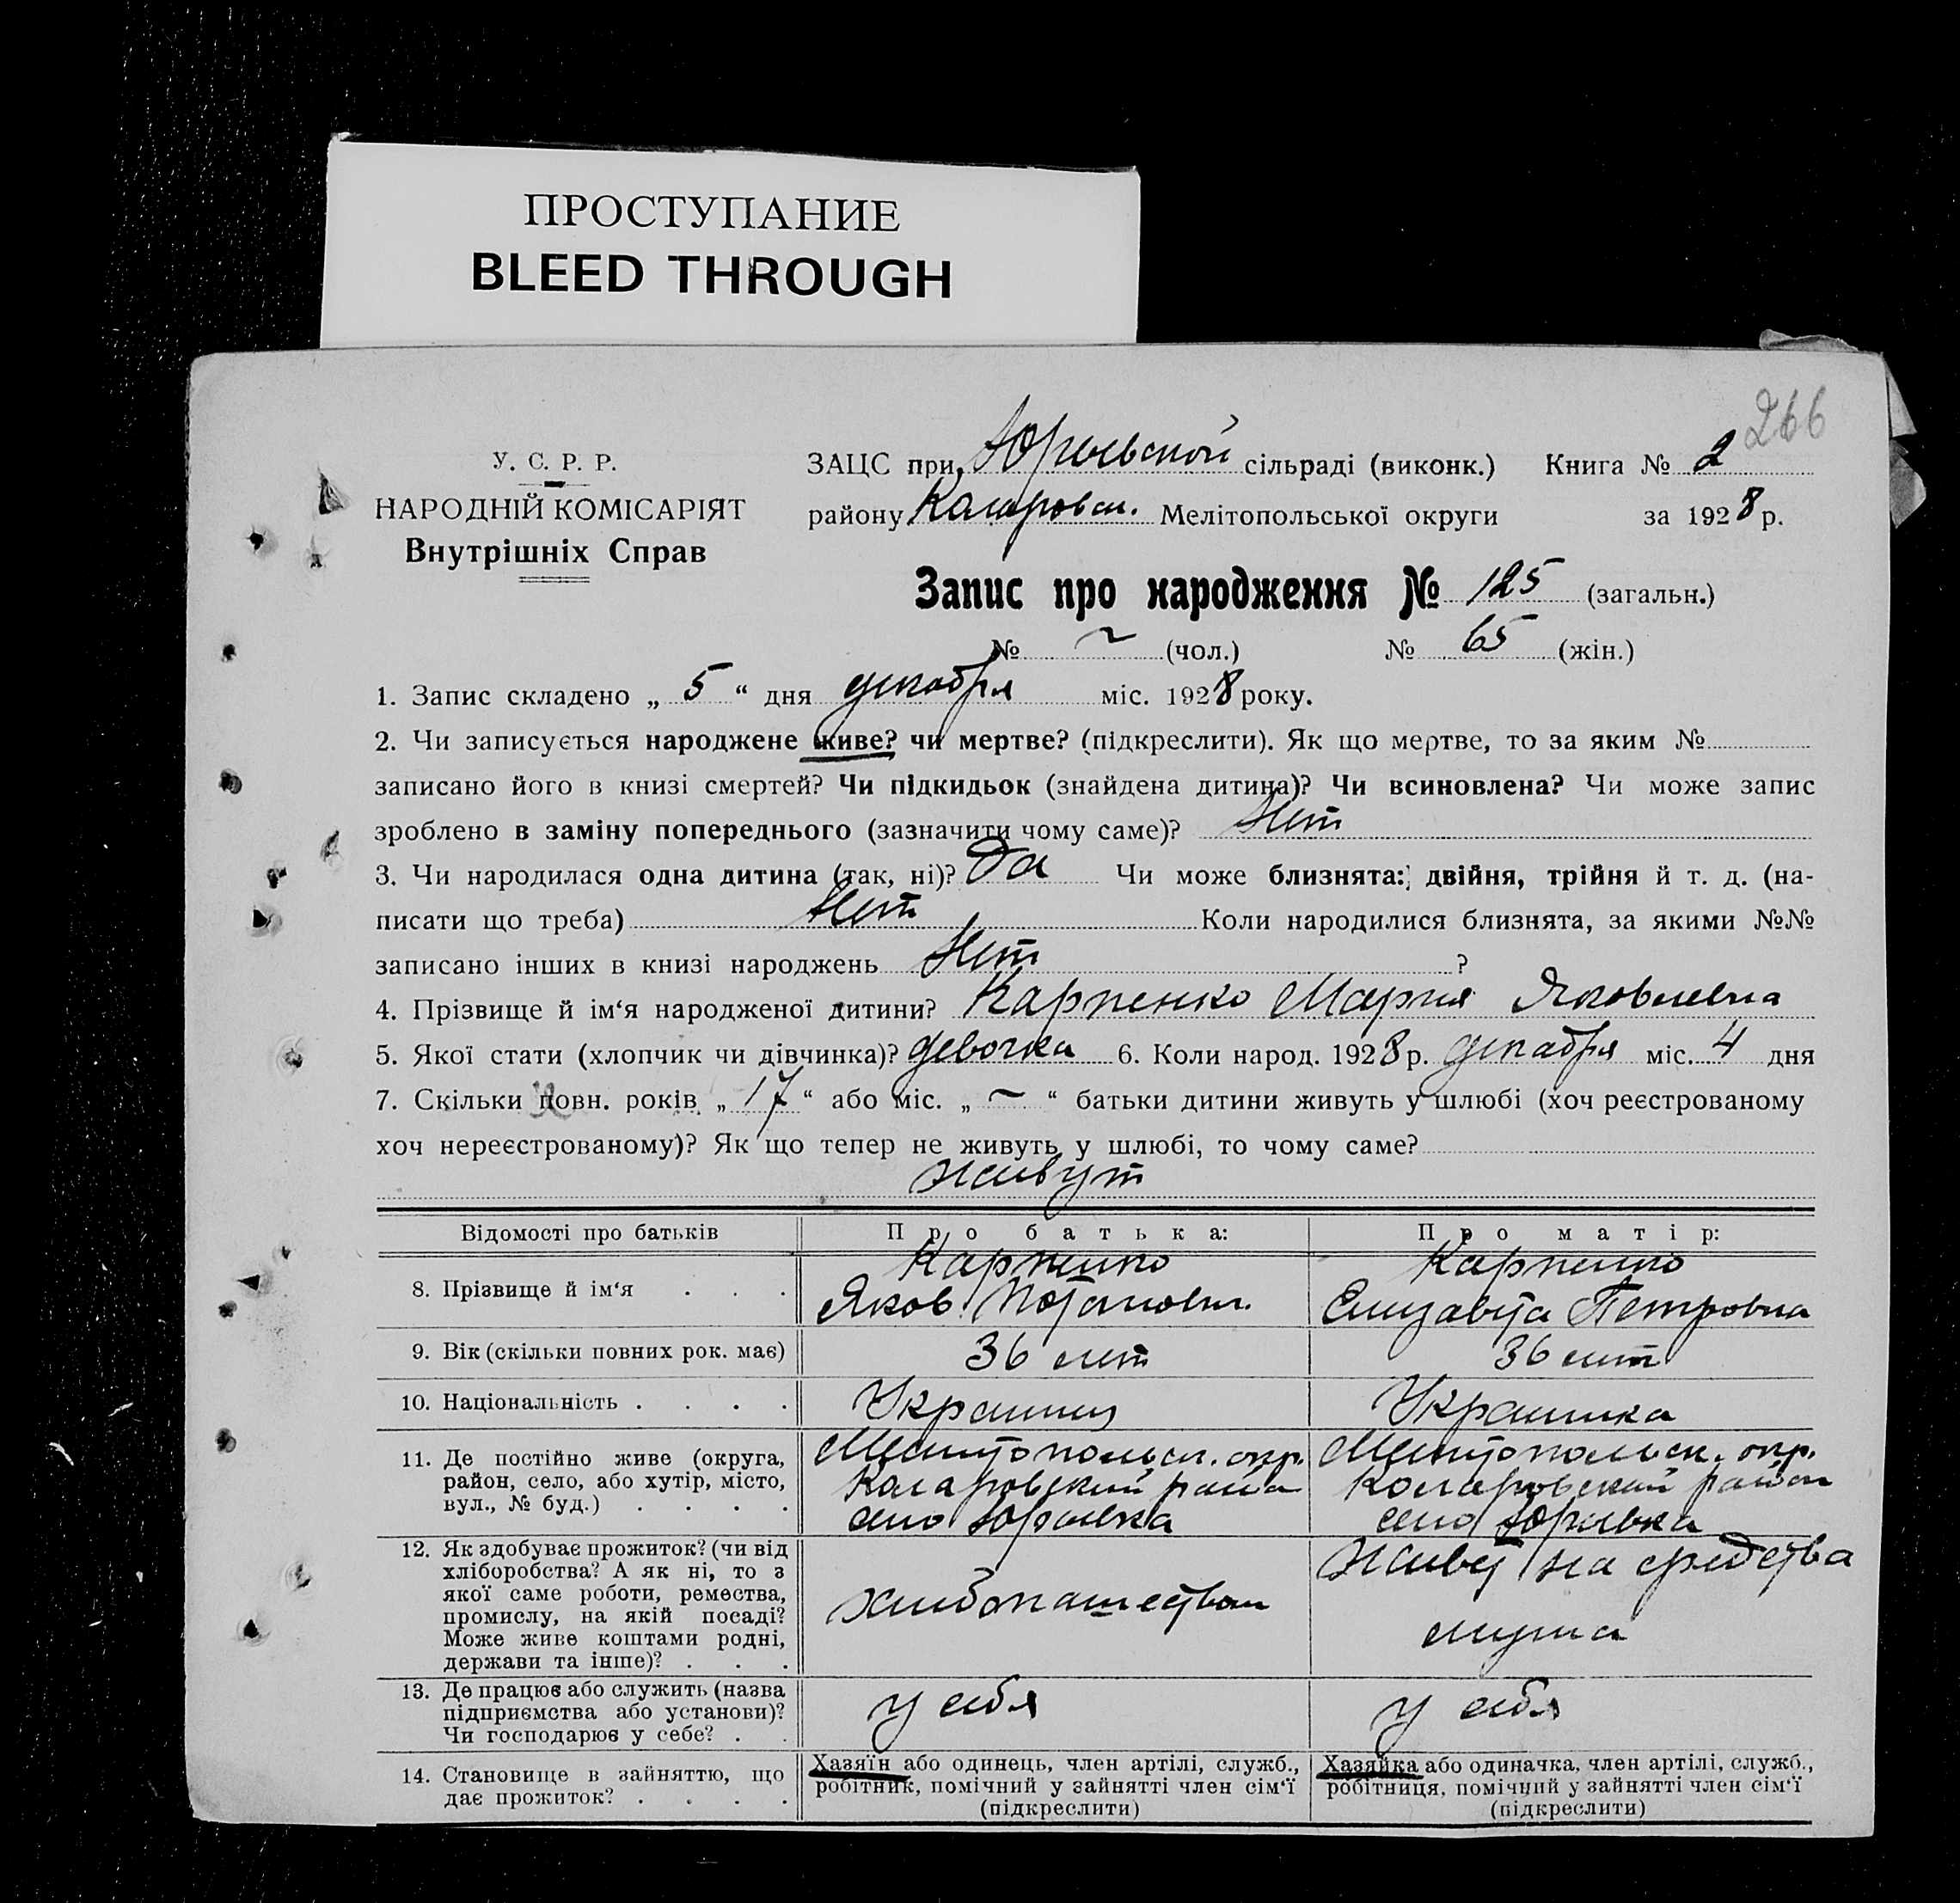 ПРОСТУПАНИЕ
BLEED THROUGH
266
У. С. Р. Р.
НАРОДНІЙ КОМІСАРІЯТ
Внутрішніх Справ
ЗАЦС при Юрьевской сільраді (виконк.) Книга № 2
району Коларовск. Мелітопольської округи за 1928 р.
Запис про народження № 125 (загальн.)
№ ~ (чол.) № 65 (жін.)
1. Запис складено „ 5 “ дня декабря міс. 1928 року.
2. Чи записується народжене живе? чи мертве? (підкреслити). Як що мертве, то за яким №
записано його в книзі смертей? Чи підкидьок (знайдена дитина)? Чи всиновлена? Чи може запис
зроблено в заміну попереднього (зазначити чому саме)? Нет
3. Чи народилася одна дитина (так, ні)? Да Чи може близнята: двійня, трійня й т. д. (на-
писати що треба) Нет Коли народилися близнята, за якими №№
записано інших в книзі народжень Нет ?
4. Прізвище й ім‘я народженої дитини? Карпенко Мария Яковлевна
5. Якої стати (хлопчик чи дівчинка)? девочка 6. Коли народ. 1928 р. декабря міс. 4 дня
7. Скільки повн. років „ 17 “ або міс. „ ~ “ батьки дитини живуть у шлюбі (хоч реєстрованому
хоч нереєстрованому)? Як що тепер не живуть у шлюбі, то чому саме?
живут
Відомості про батьків
Про батька:
Про матір:
8. Прізвище й ім‘я . . .
Карпенко
Яков Потапович.
Карпенко
Елизавета Петровна
9. Вік (скільки повних рок. має)
36 лет
36 лет
10. Національність . . . .
Украинец
Украинка
11. Де постійно живе (округа,
район, село, або хутір, місто,
вул., № буд.) . . . .
Мелитопольск. окр.
Коларовский района
село Юрьевка
Мелитопольск. окр.
Коларовский район
село Юрьевка
12. Як здобуває прожиток? (чи від
хліборобства? А як ні, то з
якої саме роботи, ремества,
промислу, на якій посаді?
Може живе коштами родні,
держави та інше)? . . .
хлебопашеством
Живет на средства
мужа
13. Де працює або служить (назва
підприємства або установи)?
Чи господарює у себе? . .
у себя
у себя
14. Становище в зайняттю, що
дає прожиток? . . . .
Хазяїн або одинець, член артілі, служб.,
робітник, помічний у зайнятті член сім‘ї
(підкреслити)
Хазяйка або одиначка, член артілі, служб.,
робітниця, помічний у зайнятті член сім‘ї
(підкреслити)